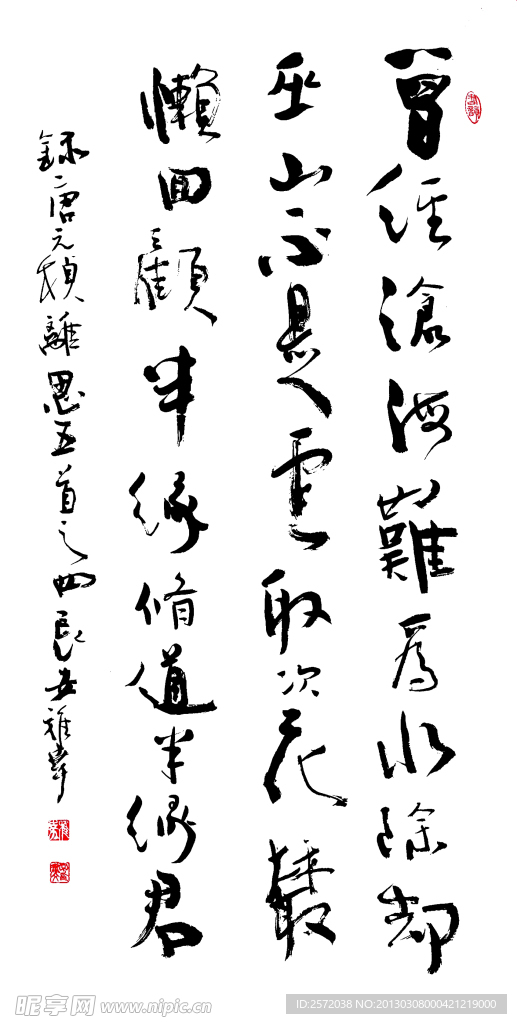 曾經滄海難爲水除却
巫山不是雲取次花叢
懶回顧半緣脩道半緣君
錄唐元稹離思五首之四長安
昵享网 www.nipic.cn
ID:2572038 NO:20130308000421219000